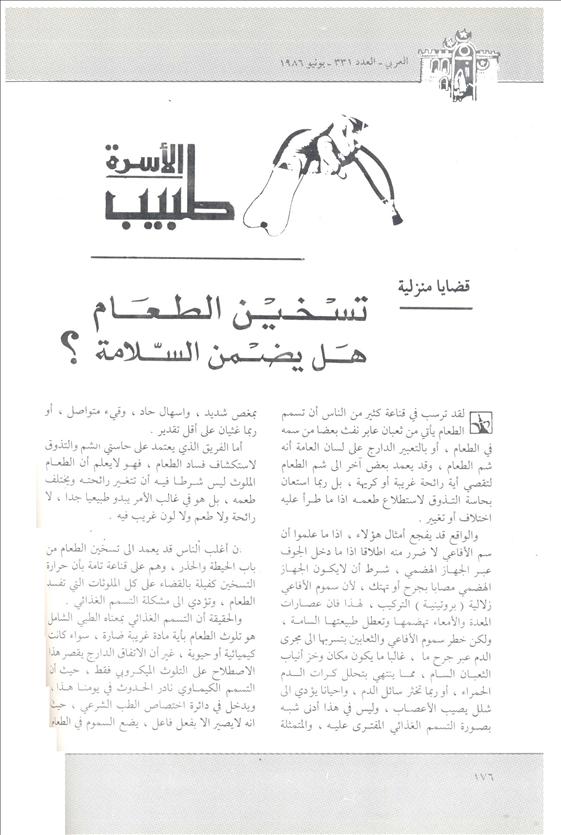 العربي - العدد ٣٣١ - يونيو ١٩٨٦
طبيب
الأسرة
قضايا منزلية
تسخين الطعام
هل يضمن السلامة ؟
لقد ترسب في قناعة كثير من الناس أن تسمم
الطعام يأتي من ثعبان عابر نفث بعضا من سمه
في الطعام ، أو بالتعبير الدارج على لسان العامة أنه
شم الطعام ، وقد يعمد بعض آخر الى شم الطعام
لتقصي أية رائحة غريبة أو كريهة ، بل ربما استعان
بحاسة التذوق لاستطلاع طعمه اذا ما طرأ عليه
اختلاف أو تغيير .
والواقع قد يفجع أمثال هؤلاء ، اذا ما علموا أن
سم الأفاعي لا ضرر منه اطلاقا اذا ما دخل الجوف
عبر الجهاز الهضمي ، شرط أن لايكون الجهاز
الهضمي مصابا بجرح أو تهتك ، لأن سموم الأفاعي
زلالية ( بروتينية ) التركيب ، لهذا فان عصارات
المعدة والأمعاء تهضمها وتعطل طبيعتها السامة ،
ولكن خطر سموم الأفاعي والثعابين بتسربها الى مجرى
الدم عبر جرح ما ، غالبا ما يكون مكان وخز أنياب
الثعبان السام ، مما ينتهي بتحلل كرات الدم
الحمراء ، أو ربما تخثر سائل الدم ، واحيانا يؤدي الى
شلل يصيب الأعصاب ، وليس في هذا أدنى شبه
بصورة التسمم الغذائي المفترى عليه ، والمتمثلة
بمغص شديد ، واسهال حاد ، وقيء متواصل ، أو
ربما غثيان على أقل تقدير .
أما الفريق الذي يعتمد على حاستي الشم والتذوق
لاستكشاف فساد الطعام ، فهو لايعلم أن الطعام
الملوث ليس شرطا فيه أن تتغير رائحته ويختلف
طعمه ، بل هو في غالب الأمر يبدو طبيعيا جدا ، لا
رائحة ولا طعم ولا لون غريب فيه .
ن أغلب الناس قد يعمد الى تسخين الطعام من
باب الحيطة والحذر ، وهم على قناعة تامة بأن حرارة
التسخين كفيلة بالقضاء على كل الملوثات التي تفسد
الطعام ، وتؤدي الى مشكلة التسمم الغذائي .
والحقيقة أن التسمم الغذائي بمعناه الطبي الشامل
هو تلوث الطعام بأية مادة غريبة ضارة ، سواء كانت
كيميائية أو حيوية ، غير أن الاتفاق الدارج يقصر هذا
الاصطلاح على التلوث الميكروبي فقط ، حيث أن
التسمم الكيماوي نادر الحدوث في يومنا هذا ،
ويدخل في دائرة اختصاص الطب الشرعي ، حيث
انه لايصير الا بفعل فاعل ، يضع السموم في الطعام
١٧٦